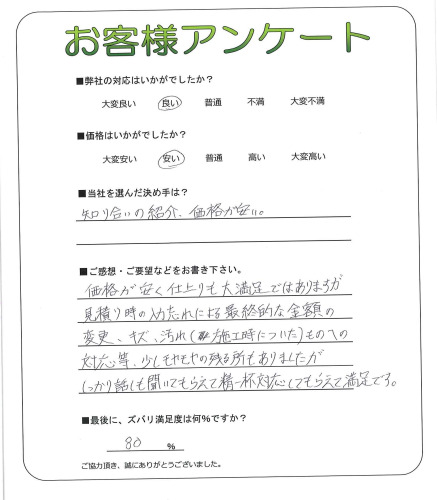 お客様アンケート
■弊社の対応はいかがでしたか？
大変良い 良い 普通 不満 大変不満
■価格はいかがでしたか？
大変安い 安い 普通 高い 大変高い
■当社を選んだ決め手は？
知り合いの紹介、価格が安い。
■ご感想・ご要望などをお書き下さい。
価格が安く仕上りも大満足ではありますが
見積り時の入力忘れによる最終的な金額の
変更、キズ、汚れ(施工時についた)ものへの
対応等、少しモヤモヤの残る所もありましたが
しっかり話しも聞いてもらえて精一杯対応してもらえて満足です。
■最後に、ズバリ満足度は何％ですか？
80 ％
ご協力頂き、誠にありがとうございました。